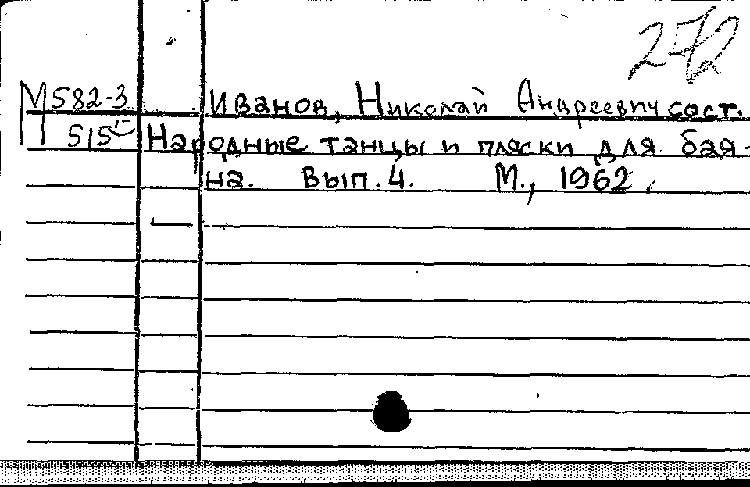 272
М582-3 Иванов, Николай Андреевич сост.
515 Народные танцы и пляски для бая-
на. Вып. 4. М., 1962.